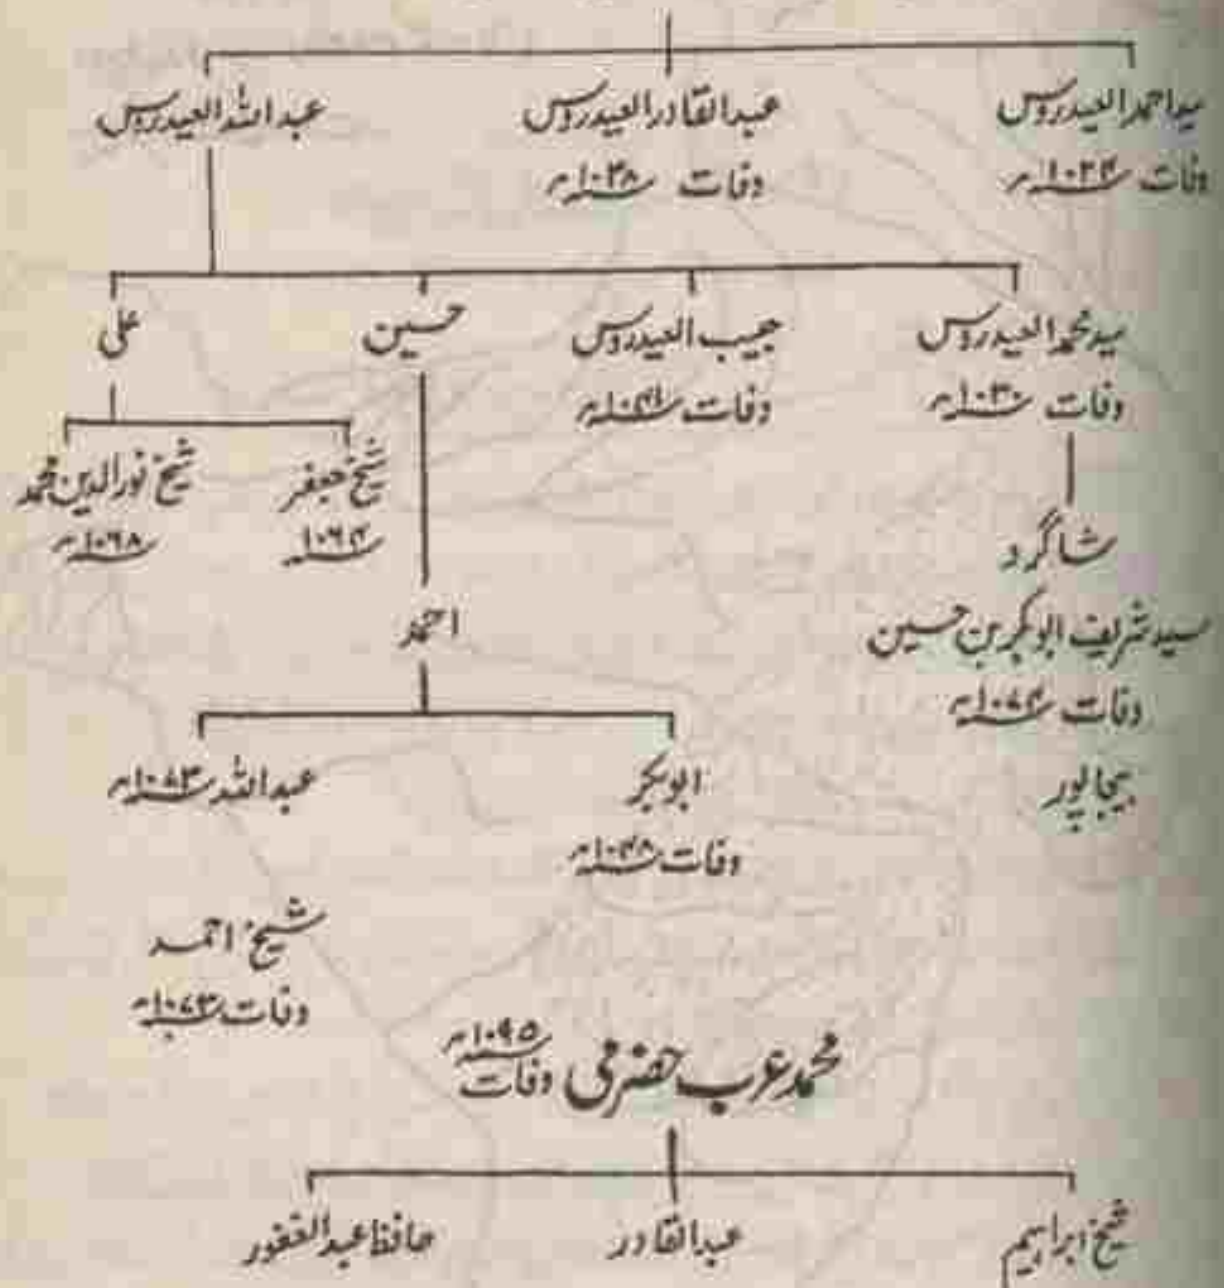 سید احمد العیدروس
وفات ۱۰۲۴ھ
عبدالقادر العیدروس
وفات ۱۰۳۸ھ
عبداللہ العیدروس
سید محمد العیدروس
وفات ۱۰۳۰ھ
حبیب العیدروس
وفات ۱۰۴۱ھ
حسین
علی
شیخ جعفر
شیخ نورالدین محمد
شاگرد
سید شریف ابوبکر بن حسین
وفات ۱۰۷۴ھ
بیجاپور
احمد
ابوبکر
وفات ۱۰۴۸ھ
عبداللہ ۱۰۷۳ھ
شیخ احمد
وفات ۱۰۷۳ھ
محمد عرب حضرمی وفات ۱۰۹۵ھ
شیخ ابراہیم
عبدالقادر
حافظ عبدالغفور